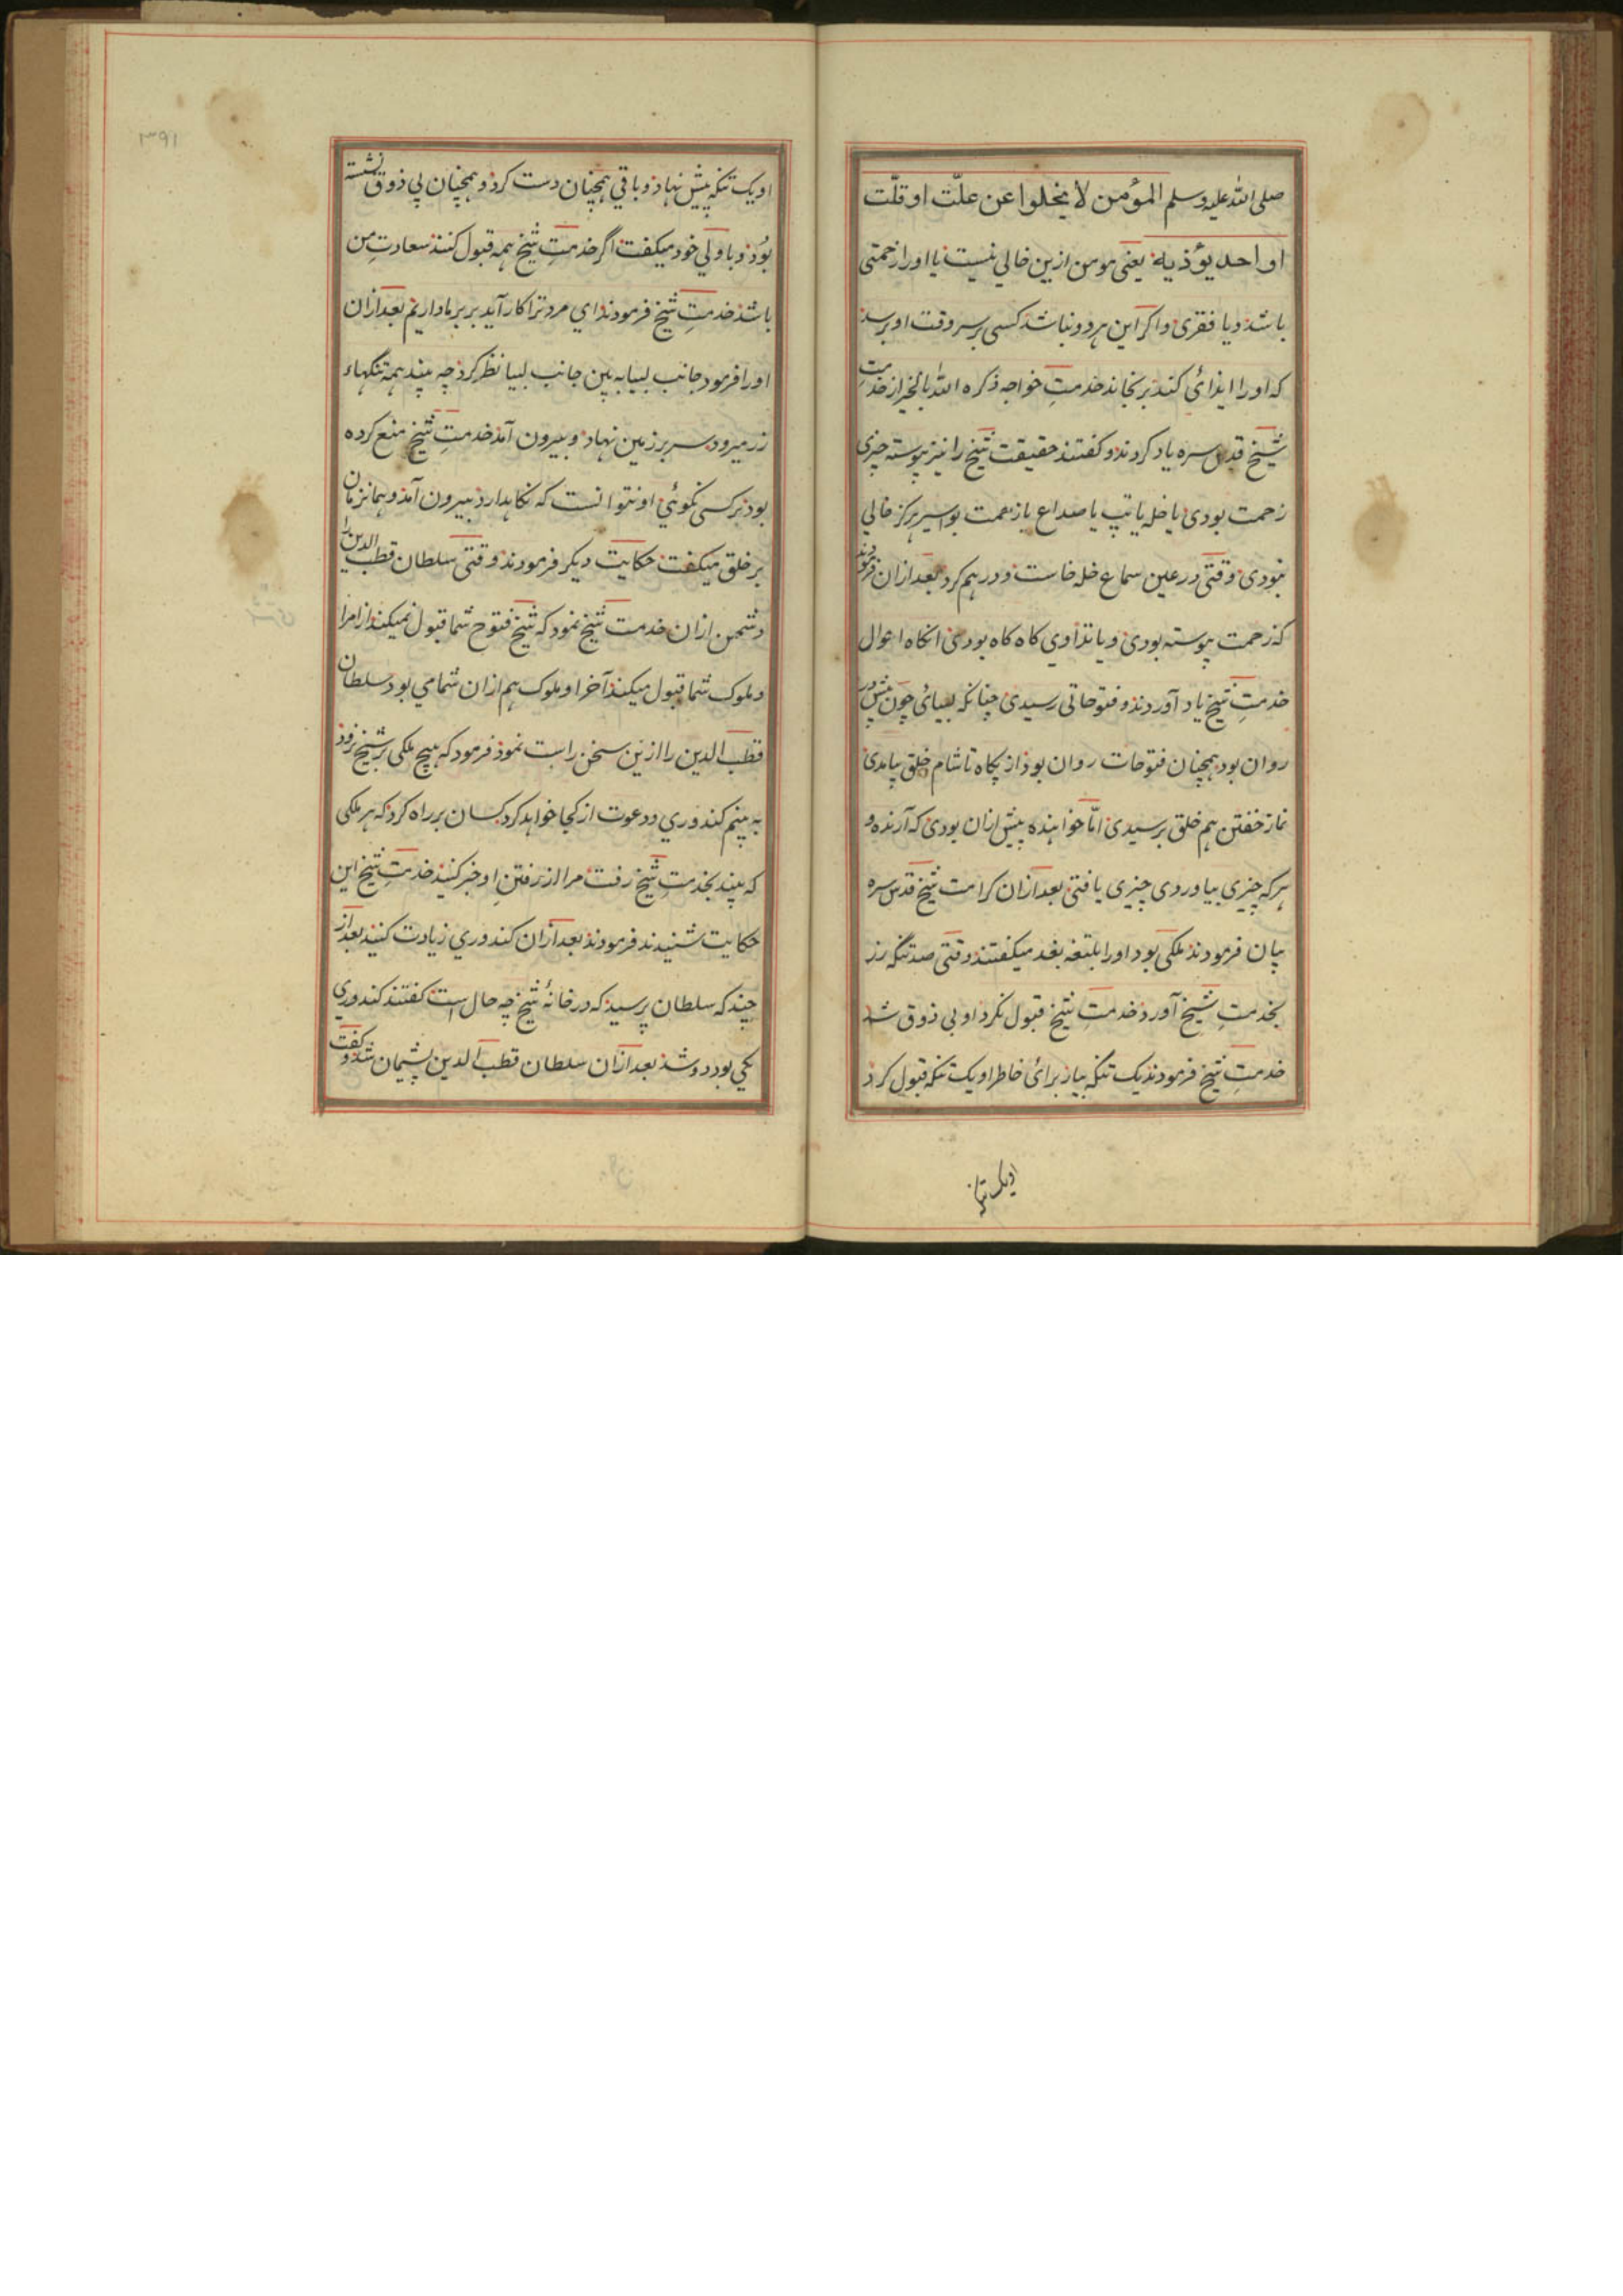 صلی الله علیه وسلم المؤمن لا یخلوا عن علّت او قلّت
او احد یؤذیه یعنی مومن ازین خالی نیست یا اورا زحمتی
باشد ویا فقری واکر این هر دو نباشد کسی بر سر وقت او برسد
که اورا ایذائی کند برنجاند خدمتِ خواجه ذکره الله بالخیر از خدمتِ
شیخ قدس سره یاد کردند و کفتند حقیقت شیخ را نیز پیوسته چیزی
زحمت بودی یا خله یا تپ یا صداع یا زحمت بواسیر هرکز خالی
نبودی وقتی در عین سماع خله خاست و درهم کرد بعد ازان فرمودند
که زحمت پیوسته بودی ویا تداوی کاه کاه بودی انکاه احوال
خدمتِ شیخ یاد آوردند و فتوحاتی رسیدی چنانکه لبیائی چون پیش در
روان بود همچنان فتوحات روان بود از پکاه تا شام خلق بیامدی
نماز خفتن هم خلق برسیدی امّا خواهنده بیش ازان بودی که آرنده و
هر که چیزی بیاوردی چیزی یافتی بعد ازان کرامت شیخ قدس سره
بیان فرمودند ملکی بود اورا بلتغه بغد میکفتند وقتی صد تنکه زر
بخدمتِ شیخ آورد خدمتِ شیخ قبول نکرد او بی ذوق شد
خدمتِ شیخ فرمودند یک تنکه بیار برائ خاطر او یک تنکه قبول کرد
او یک تنکه
۱۳۹۱
او یک تنکه پیش نهاد و باقی همچنان دست کرد و همچنان بی ذوق نشسته
بود و با دلی خود میکفت اگر خدمتِ شیخ همه قبول کنند سعادتِ من
باشد خدمتِ شیخ فرمودند ای مرد ترا کار آید بر بر ما داریم بعد ازان
اورا فرمود جانب لبیا به بین جانب لبیا نظر کرد چه بیند همه تنکهاء
زر میرود سر بر زمین نهاد و بیرون آمد خدمتِ شیخ منع کرده
بود بر کسی نکوئی او نتوانست که نکاهدارد بیرون آمد و همانزمان
بر خلق میکفت حکایت دیکر فرمودند وقتی سلطان قطب الدین را
دشمن ازان خدمت شیخ نمود که شیخ فتوح شما قبول نمیکند از امرا
وملوک شما قبول میکند آخر او ملوک هم ازان شما می بود سلطان
قطب الدین را ازین سخن راست نمود فرمود که هیچ ملکی بر شیخ نرود
به بینم کندوری ودعوت از کجا خواهد کرد کسان بر راه کرد که هر ملکی
که بیند بخدمتِ شیخ رفت مرا از رفتنِ او خبر کنید خدمتِ شیخ این
حکایت شنیدند فرمودند بعد ازان کندوری زیادت کنید بعد از
چند که سلطان پرسید که در خانهٔ شیخ چه حال است کفتند کندوری
یکی بود دو شد بعد ازان سلطان قطب الدین پشیمان شد و کفت